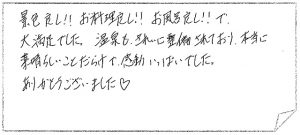 景色良し!! お料理良し!! お風呂良し!! で、
大満足でした。温泉も、きれいに整備されており、本当に
素晴らしいことだらけで、感動いっぱいでした。
ありがとうございました♡